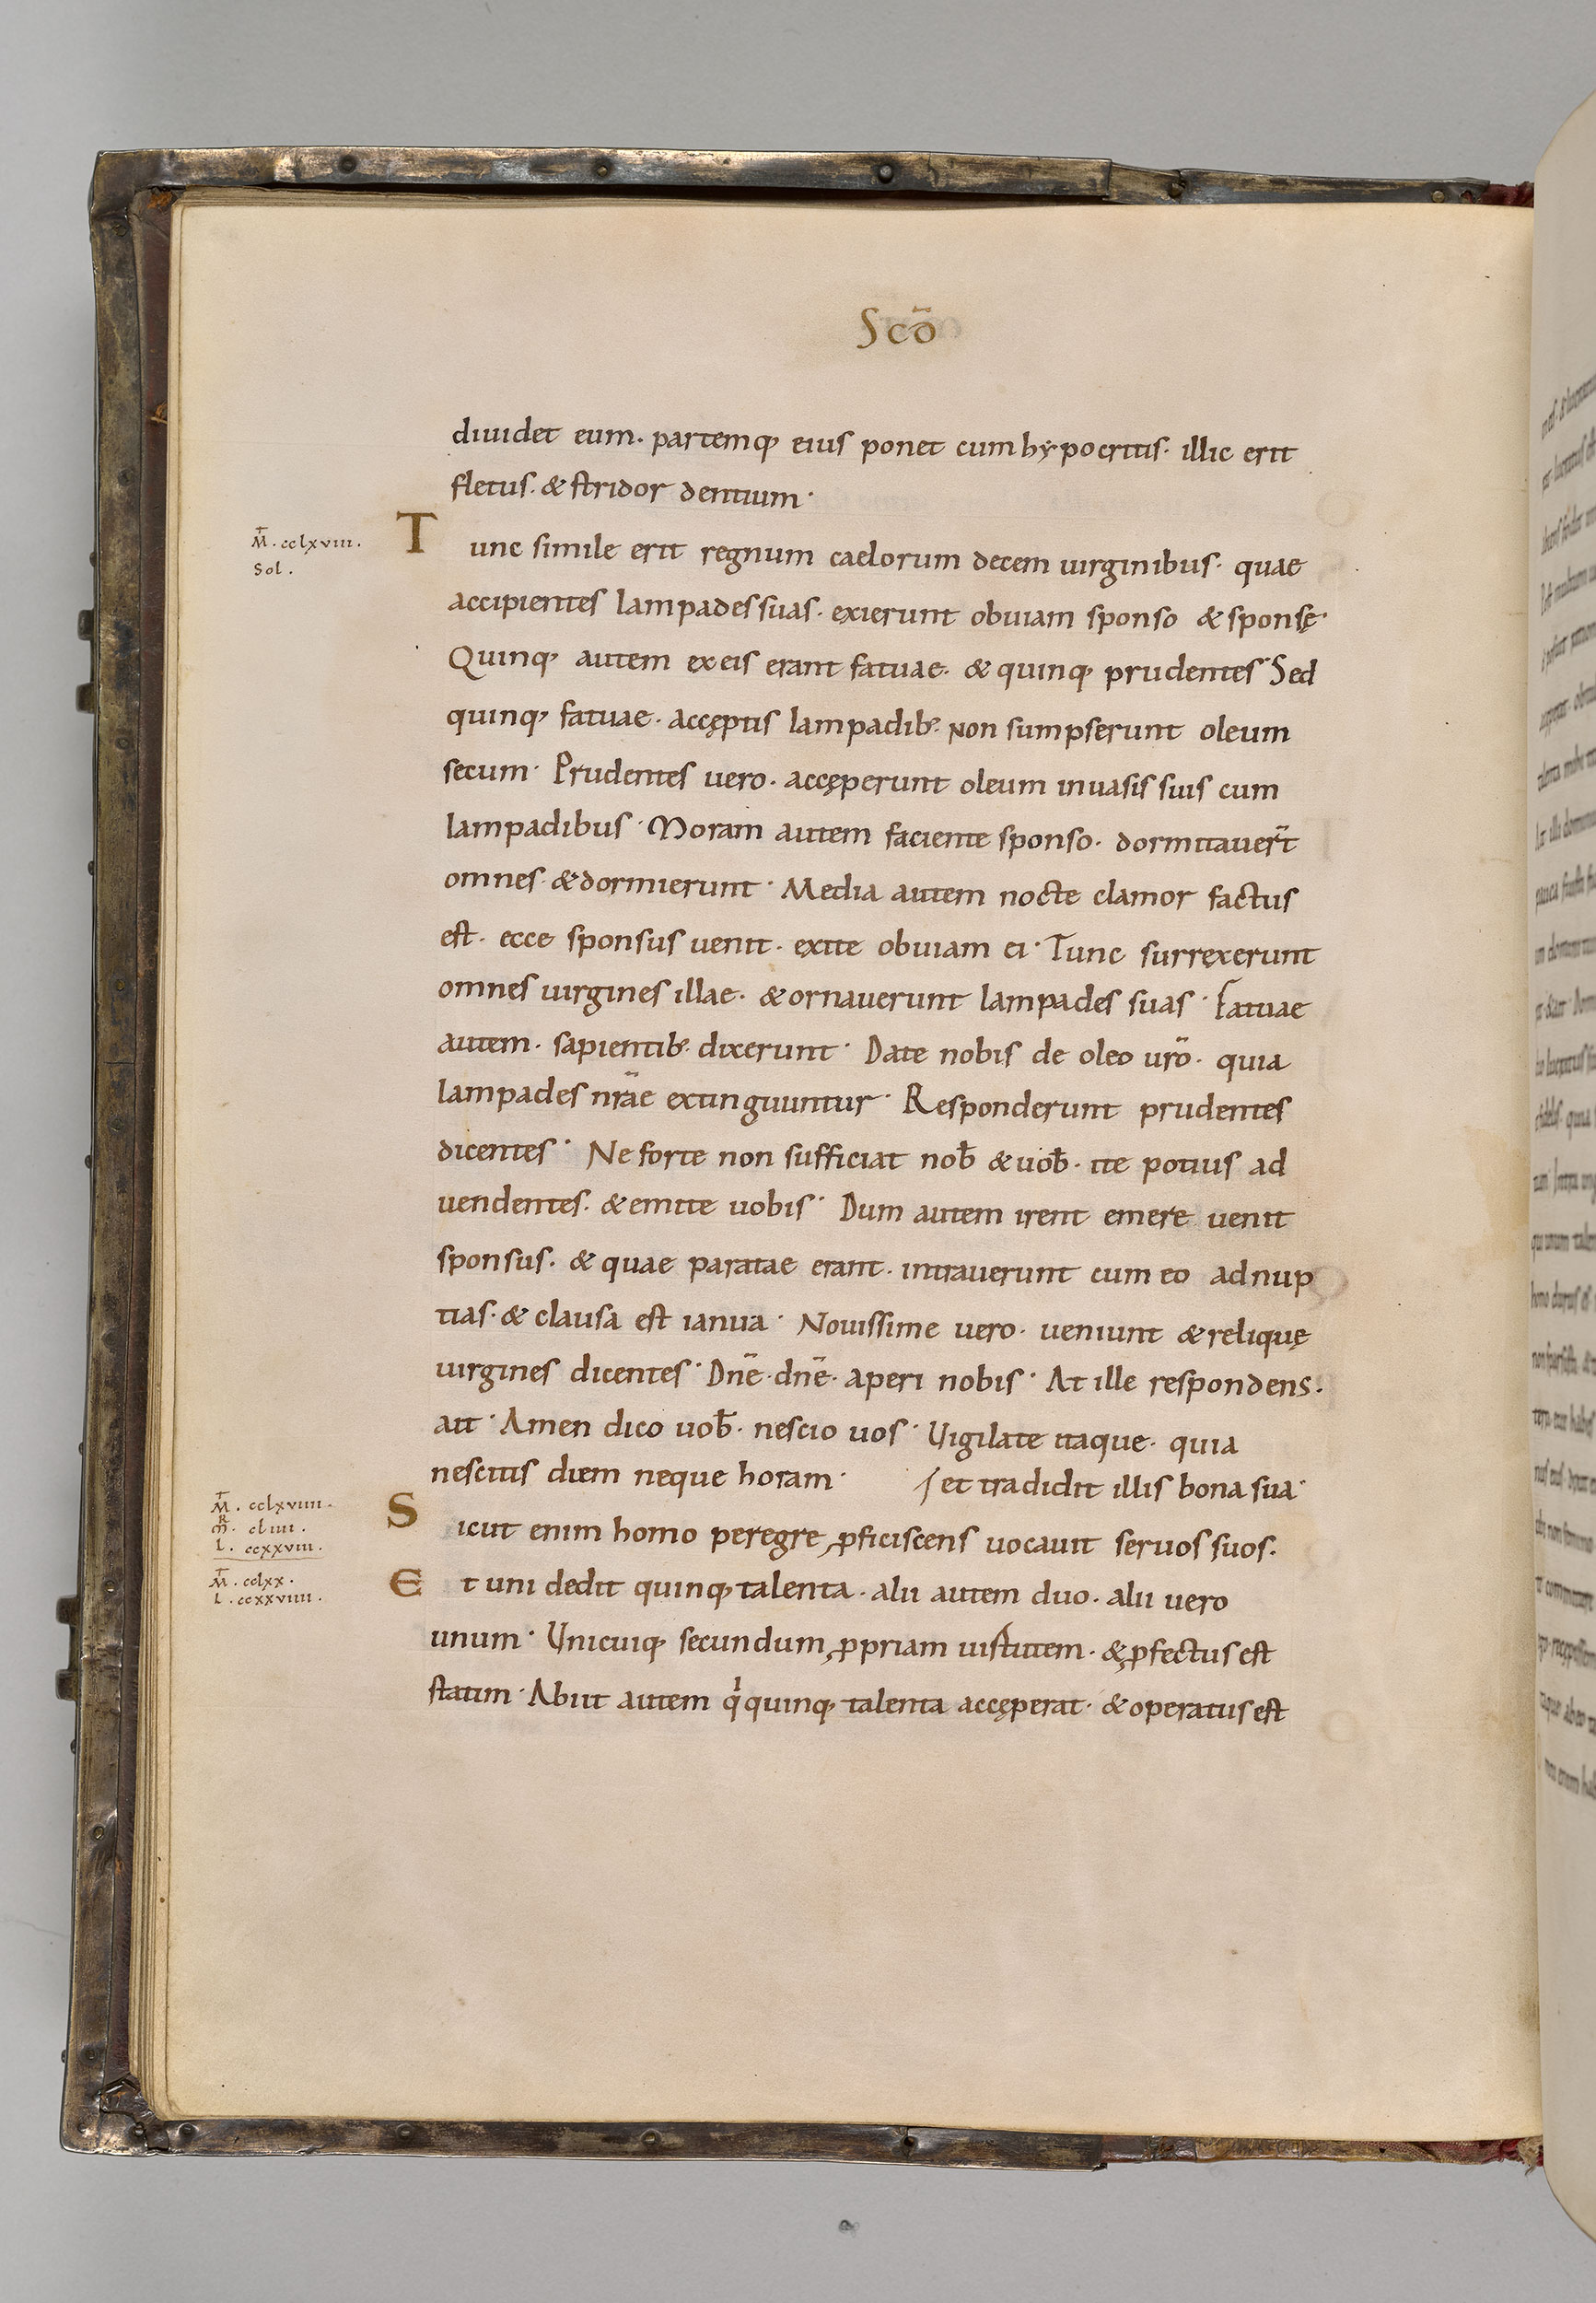 Scō
diuidet eum· partemq; eius ponet cum hypocritis· illic erit
fletus· & stridor dentium·
M̅· cclxviii·
Sol·
Tunc simile erit regnum caelorum decem uirginibus· quae
accipientes lampades suas· exierunt obuiam sponso & sponsę·
Quinq; autem ex eis erant fatuae· & quinq; prudentes· Sed
quinq; fatuae· accęptis lampadib; non sumpserunt oleum
secum· Prudentes uero· accęperunt oleum in uasis suis cum
lampadibus· Moram autem faciente sponso· dormitauer̄t
omnes· & dormierunt· Media autem nocte clamor factus
est· ecce sponsus uenit· exite obuiam ei· Tunc surrexerunt
omnes uirgines illae· & ornauerunt lampades suas· Fatuae
autem· sapientib; dixerunt· Date nobis de oleo ur̄o· quia
lampades nr̄ae extinguuntur· Responderunt prudentes
dicentes· Ne forte non sufficiat nob̄ & uob̄· ite potius ad
uendentes· & emite uobis· Dum autem irent emere uenit
sponsus· & quae paratae erant· intrauerunt cum eo ad nup
tias· & clausa est ianua· Nouissime uero· ueniunt & reliquę
uirgines dicentes· Dn̄e· dn̄e· aperi nobis· At ille respondens·
ait· Amen dico uob̄· nescio uos· Uigilate itaque· quia
nescitis diem neque horam· / et tradidit illis bona sua·
M̅· cclxviiii·
MR· cliiii·
L· ccxxviii·
Sicut enim homo peregre ꝓficiscens uocauit seruos suos·
M̅· cclxx·
L· ccxxviiii·
Et uni dedit quinq; talenta· alii autem duo· alii uero
unum· Unicuiq; secundum ꝓpriam uirtutem· & ꝓfectus est
statim· Abiit autem qͥ quinq; talenta accęperat· & operatus est